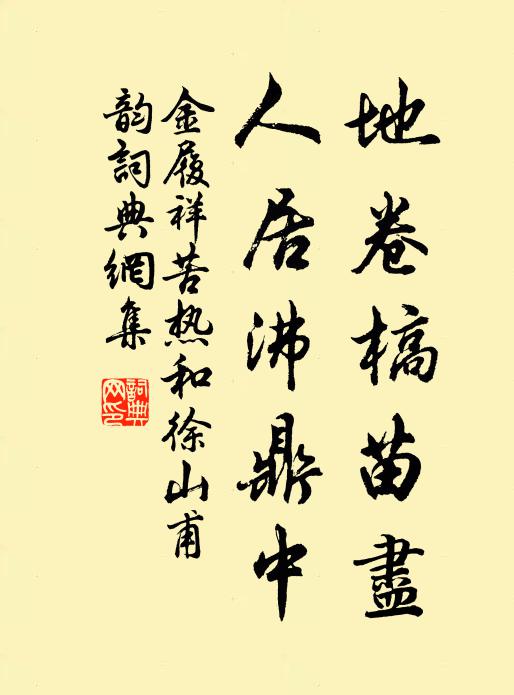 地卷槁苗盡
人居沸鼎中
金履祥苦热和徐山甫
韵詞典網集
詞典网印